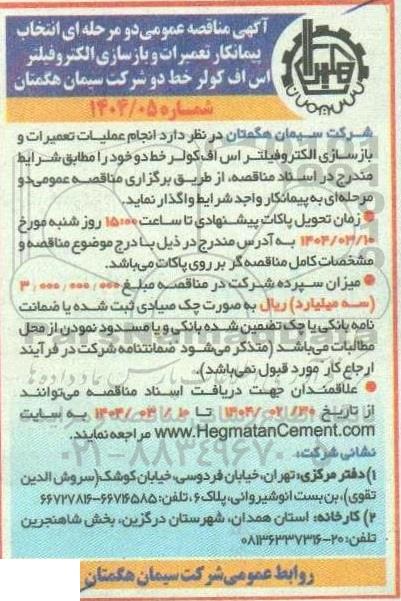 آگهی مناقصه عمومی دو مرحله ای انتخاب
پیمانکار تعمیرات و بازسازی الکتروفیلتر
اس اف کولر خط دو شرکت سیمان هگمتان
شماره ۱۴۰۴/۰۵
شرکت سیمان هگمتان در نظر دارد انجام عملیات تعمیرات و
بازسازی الکتروفیلتر اس اف کولر خط دو خود را مطابق شرایط
مندرج در اسناد مناقصه، از طریق برگزاری مناقصه عمومی دو
مرحله ای به پیمانکار واجد شرایط واگذار نماید.
● زمان تحویل پاکات پیشنهادی تا ساعت ۱۵:۰۰ روز شنبه مورخ
۱۴۰۴/۰۳/۱۰ به آدرس مندرج در ذیل با درج موضوع مناقصه و
مشخصات کامل مناقصه گر بر روی پاکات می‌باشد.
● میزان سپرده شرکت در مناقصه مبلغ ۳/۰۰۰/۰۰۰/۰۰۰
(سه میلیارد) ریال به صورت چک صیادی ثبت شده یا ضمانت
نامه بانکی یا چک تضمین شده بانکی و یا مسدود نمودن از محل
مطالبات می‌باشد (متذکر می‌شود ضمانتنامه شرکت در فرآیند
ارجاع کار مورد قبول نمی‌باشد).
● علاقمندان جهت دریافت اسناد مناقصه می‌توانند
از تاریخ ۱۴۰۴/۰۲/۳۰ تا ۱۴۰۴/۰۳/۱۰ به سایت
www.HegmatanCement.com مراجعه نمایند.
نشانی شرکت:
۱) دفتر مرکزی: تهران، خیابان فردوسی، خیابان کوشک (سروش الدین
تقوی)، بن بست انوشیروانی، پلاک ۶، تلفن: ۶۶۷۱۶۵۸۵-۶۶۷۲۷۸۱۶
۲) کارخانه: استان همدان، شهرستان درگزین، بخش شاهنجرین
تلفن: ۲۰-۰۸۱۳۶۳۳۷۳۱۶
روابط عمومی شرکت سیمان هگمتان
۰۲۱-۸۸۳۴۹۶۷۰